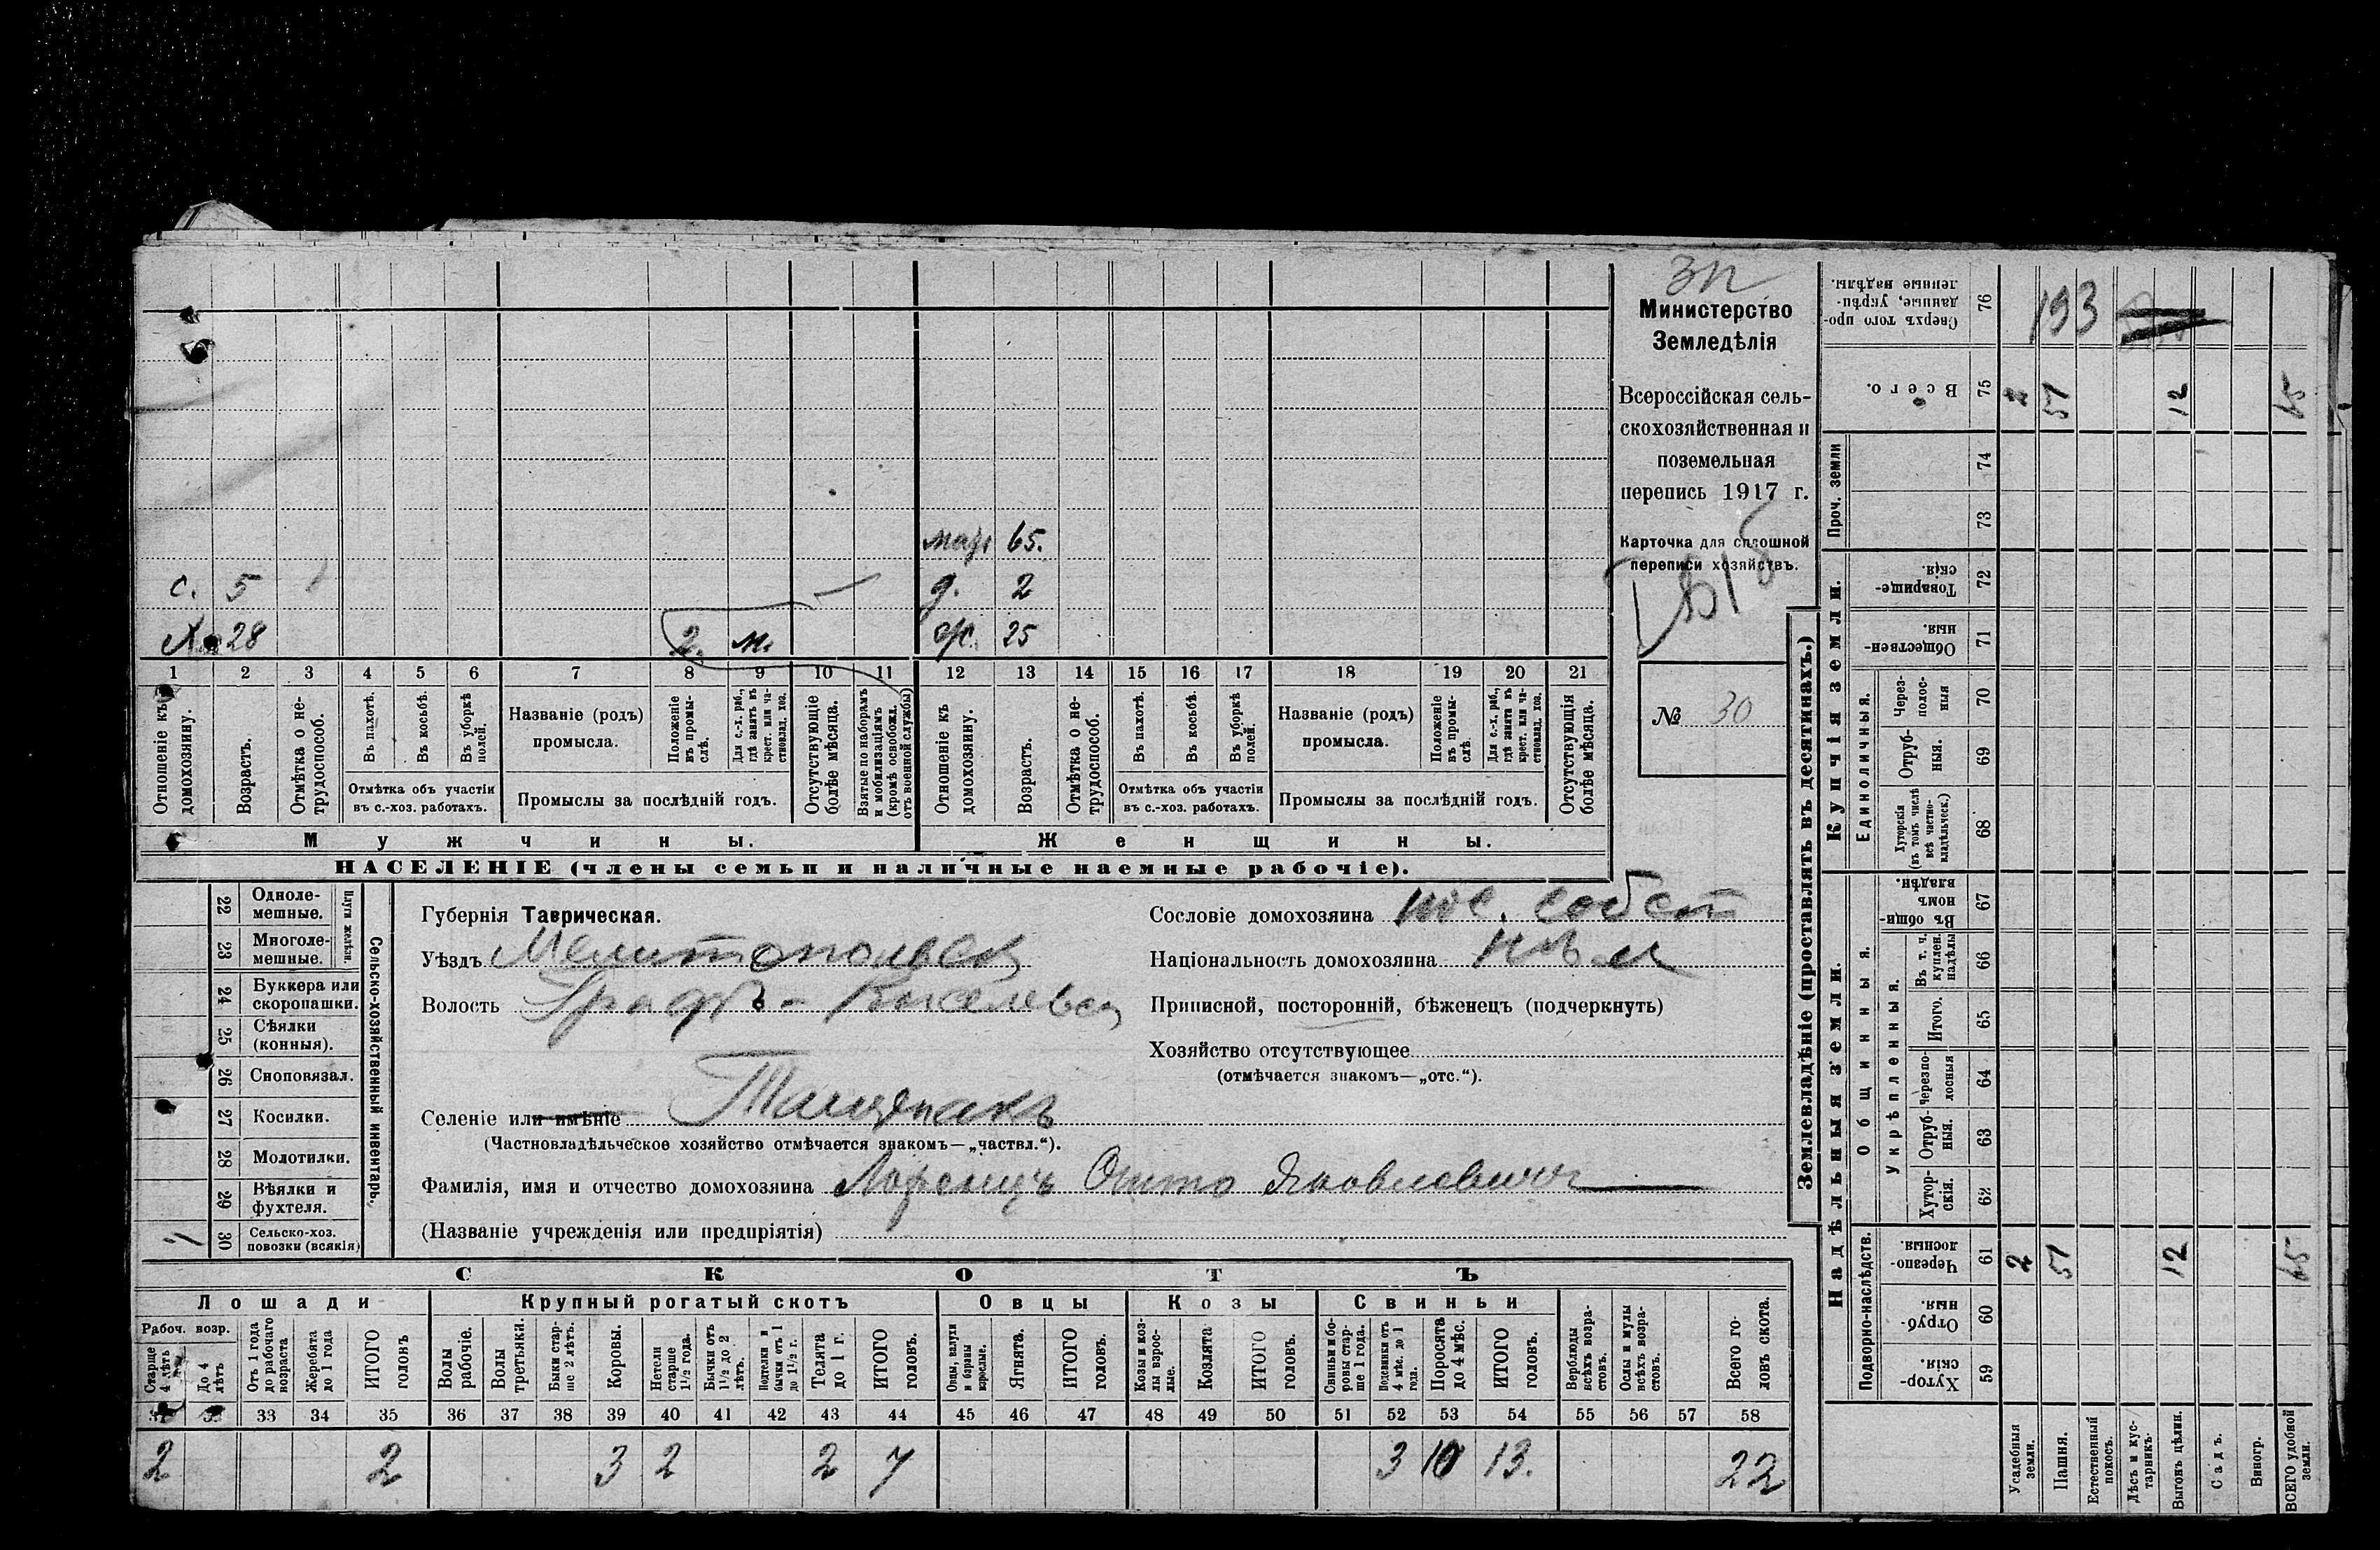 ЗП
Министерство
Земледѣлія
Всероссійская сель-
скохозяйственная и
поземельная
перепись 1917 г.
Карточка для сплошной
переписи хозяйствъ.
№ 30
65.
с. 5 д. 2
Х. 28 2. м. ж. 25
1 2 3 4 5 6 7 8 9 10 11 12 13 14 15 16 17 18 19 20 21
Отношеніе къ домохозяину.
Возрастъ.
Отмѣтка о не-трудоспособ.
Въ пахотѣ.
Въ косьбѣ.
Въ уборкѣ полей.
Отмѣтка объ участіи
въ с.-хоз. работахъ.
Названіе (родъ)
промысла.
Положеніе въ промы-слѣ.
Для с.-х. раб., гдѣ занятъ въ крест. или ча-стновлад. хоз.
Промыслы за послѣдній годъ.
Отсутствующіе болѣе мѣсяца.
Взятые по наборамъ и мобилизаціямъ (кромѣ освобожд. отъ военной службы)
Отношеніе къ домохозяину.
Возрастъ.
Отмѣтка о не-трудоспособ.
Въ пахотѣ.
Въ косьбѣ.
Въ уборкѣ полей.
Отмѣтка объ участіи
въ с.-хоз. работахъ.
Названіе (родъ)
промысла.
Положеніе въ промы-слѣ.
Для с.-х. раб., гдѣ занята въ крест. или ча-стновлад. хоз.
Промыслы за послѣдній годъ.
Отсутствующія болѣе мѣсяца.
Мужчины. Женщины.
НАСЕЛЕНІЕ (члены семьи и наличные наемные рабочіе).
Сельско-хозяйственный инвентарь.
Плуги желѣзн.
22 Одноле-мешные.
23 Многоле-мешные.
24 Буккера или скоропашки.
25 Сѣялки (конныя).
26 Сноповязал.
27 Косилки.
28 Молотилки.
29 Вѣялки и фухтеля.
30 Сельско-хоз. повозки (всякія)
Губернія Таврическая.
Уѣздъ Мелитопольск
Волость Графъ-
Селеніе или имѣніе Тащенакъ
(Частновладѣльческое хозяйство отмѣчается знакомъ—„частвл.“).
Фамилія, имя и отчество домохозяина Лоренцъ Отто Яковлевичъ
(Названіе учрежденія или предпріятія)
Сословіе домохозяина пос. собст
Національность домохозяина нѣм
Приписной, посторонній, бѣженецъ (подчеркнуть)
Хозяйство отсутствующее
(отмѣчается знакомъ—„отс.“).
СКОТЪ
Лошади Крупный рогатый скотъ Овцы Козы Свиньи
Рабоч. возр.
Старше 4 лѣтъ
До 4 лѣтъ
Отъ 1 года до рабочаго возраста
Жеребята до 1 года
ИТОГО головъ
Волы рабочіе.
Волы третьяки.
Быки стар-ше 2 лѣтъ.
Коровы.
Нетели старше 1½ года.
Бычки отъ 1½ до 2 лѣтъ.
Подтелки и бычки отъ 1 до 1½ г.
Телята до 1 г.
ИТОГО головъ.
Овцы, валухи и бараны взрослые.
Ягнята.
ИТОГО головъ.
Козы и коз-лы взрос-лые.
Козлята
ИТОГО головъ.
Свиньи и бо-ровы стар-ше 1 года.
Подсвинки отъ 4 мѣс. до 1 года.
Поросята до 4 мѣс.
ИТОГО головъ.
Верблюды всѣхъ возра-стовъ.
Ослы и мулы всѣхъ возра-стовъ.
Всего го-ловъ скота.
33 34 35 36 37 38 39 40 41 42 43 44 45 46 47 48 49 50 51 52 53 54 55 56 57 58
2 2 3 2 2 7 3 10 13. 22
Землевладѣніе (проставлять въ десятинахъ.)
Сверхъ того про-данные, укрѣп-ленные надѣлы. 76 193
Всего. 75 2 51 12 65
Проч. земли 74 73
Купчія земли.
Товарище-скія. 72
Обществен-ныя. 71
Единоличныя.
Через-полос-ныя 70
Отруб-ныя. 69
Хуторскія (въ томъ числѣ всѣ частно-владѣльческ.) 68
Надѣльныя земли.
Общинныя.
Въ общин-номъ владѣн. 67
Укрѣпленныя.
Въ т. ч. куплен. надѣлы 66
Итого. 65
Черезпо-лосныя 64
Отруб-ныя. 63
Хутор-скія. 62
Подворно-наслѣдств.
Черезпо-лосныя. 61 2 51 12 65
Отруб-ныя. 60
Хутор-скія. 59
Усадебныя земли.
Пашня.
Естественный покосъ.
Лѣсъ и кус-тарникъ.
Выгонъ цѣлин.
Садъ.
Виногр.
ВСЕГО удобной земли.